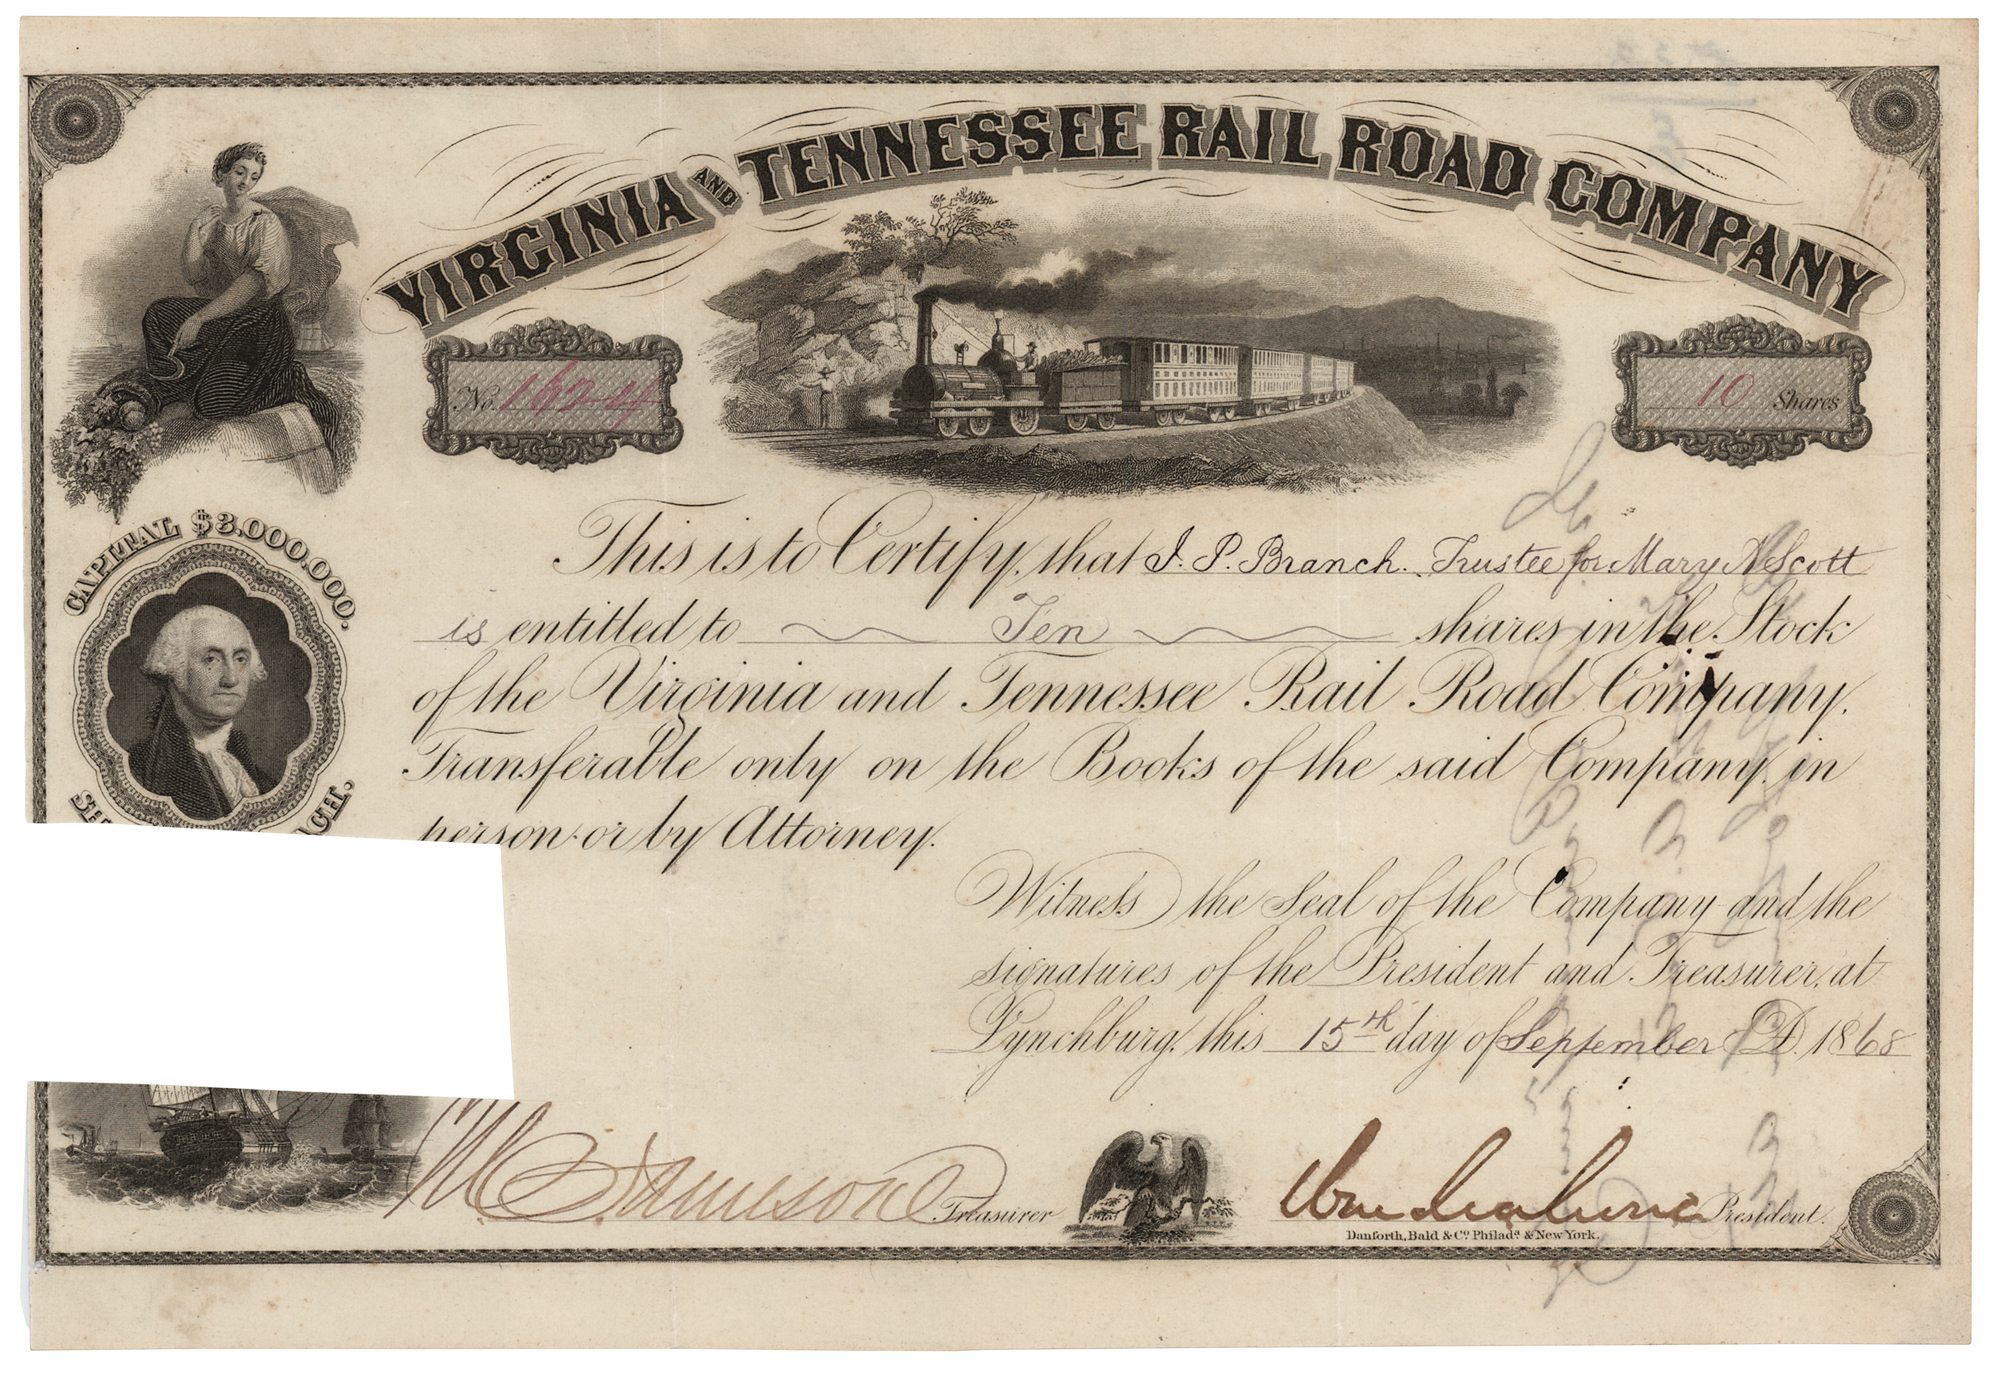 VIRGINIA AND TENNESSEE RAIL ROAD COMPANY
No. 1624
10 Shares
CAPITAL $3,000,000.
This is to Certify, that J. P. Branch. Trustee for Mary N Scott
is entitled to Ten shares in the Stock
of the Virginia and Tennessee Rail Road Company.
Transferable only on the Books of the said Company, in
person or by Attorney.
Witness the Seal of the Company and the
signatures of the President and Treasurer, at
Lynchburg, this 15th day of September A.D. 1868
Treasurer
President.
Danforth, Bald & Co. Philada. & New York.